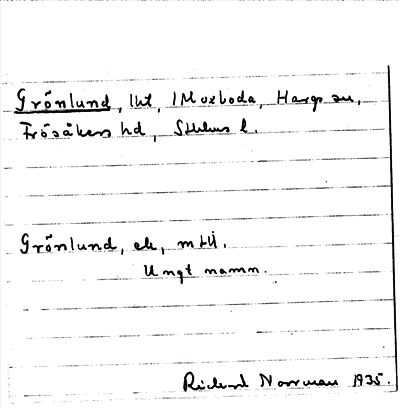 Grönlund, lht, i Moxboda, Hargs sn,
Frösåkers hd, Sthlms l.
Grönlund, ek,
Ungt namn.
Rickard Norrman 1935.